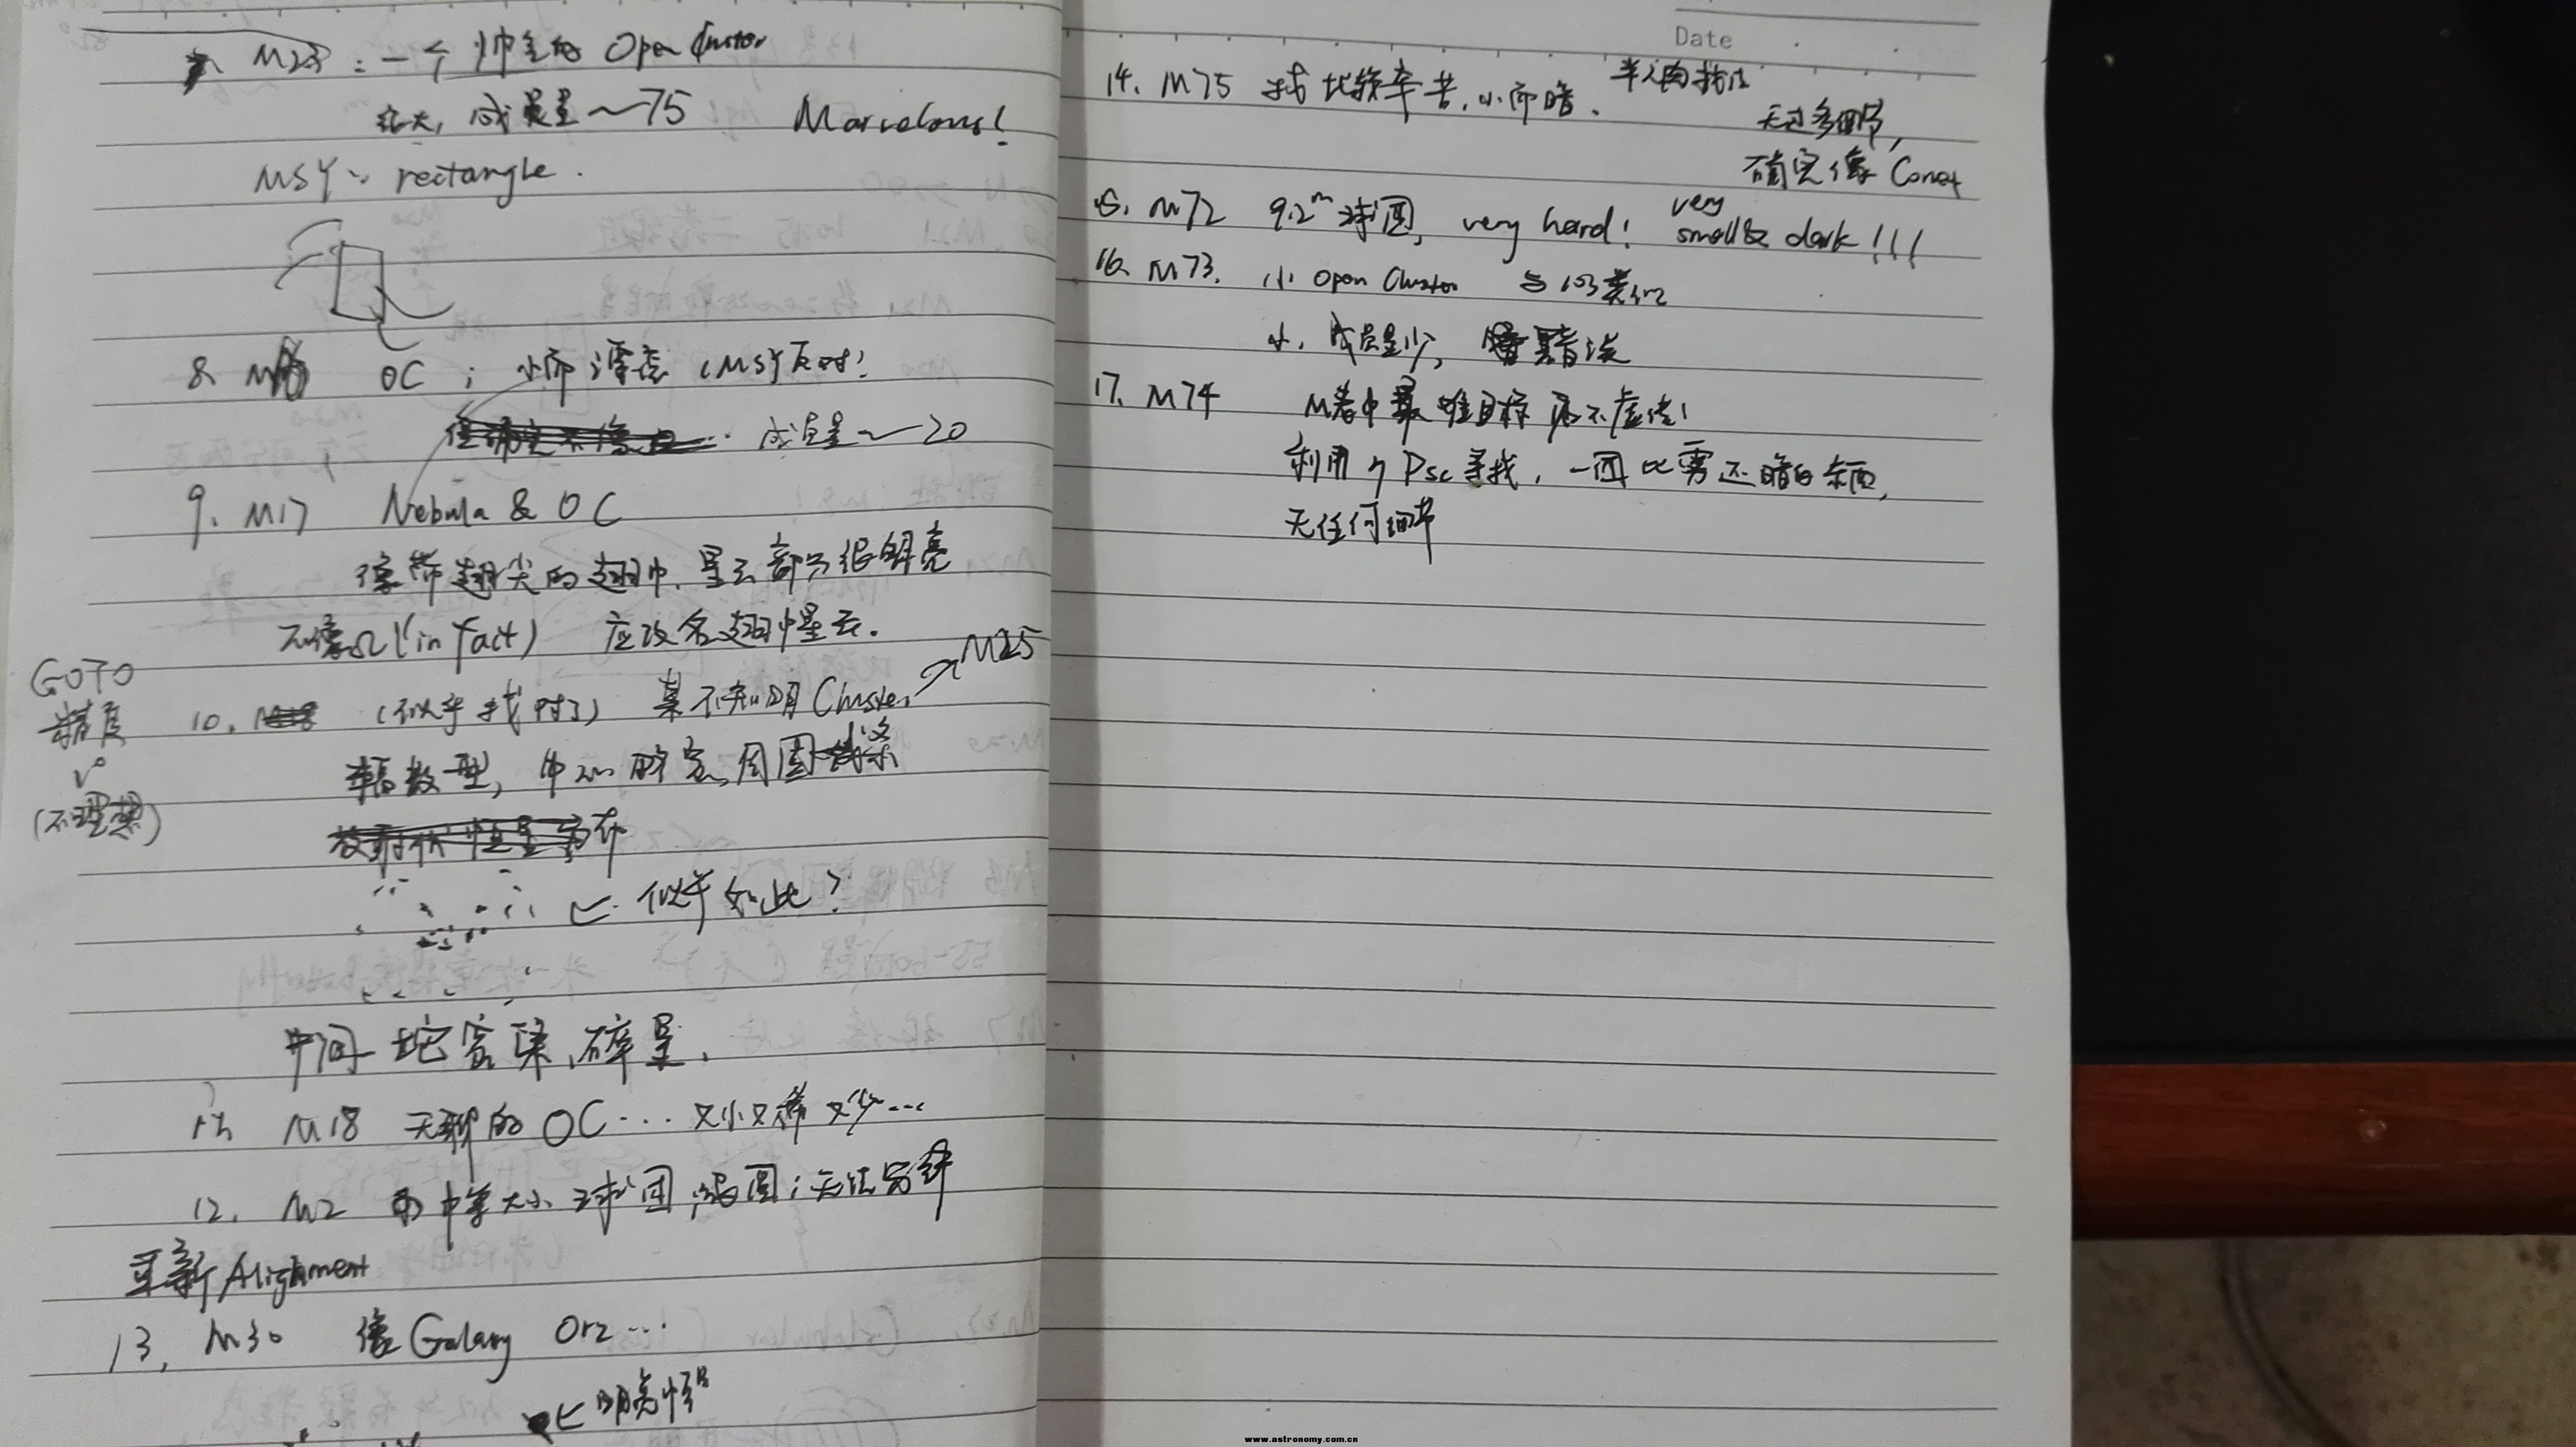 M23：一个帅全的 Open Cluster
很大，成员星～75 Marvelous!
MSY: rectangle.
8. OC；小而漂亮（MSY反对！
成员星～20
9. M17 Nebula & OC
像带翅尖的翅中，星云部分很明亮
不像Ω(in fact) 应改名翅中星云.
GOTO
精度
1°
(不理想)
10. (似乎找对了) 某不知明Cluster, → M25
辐散型，中心密，周围
← 似乎如此？
中间 密集、碎星.
M18 无聊的 OC... 又小又稀又少...
12. M2 中等大小球团，很圆；无法分解
重新Alignment
13. M30 像Galaxy Orz...
← 明亮恒星
Date
14. M75 找比较辛苦，小而暗.
无过多细节,
确实像 Comet
15. M72 9.2m球团, very hard! very small & dark!!!
16. M73. 小 Open Cluster 与103类似
小，成员星少，黯淡
17. M74 M表中最难目标 名不虚传!
利用η Psc寻找，一团比雾还暗的东西,
无任何细节
www.astronomy.com.cn